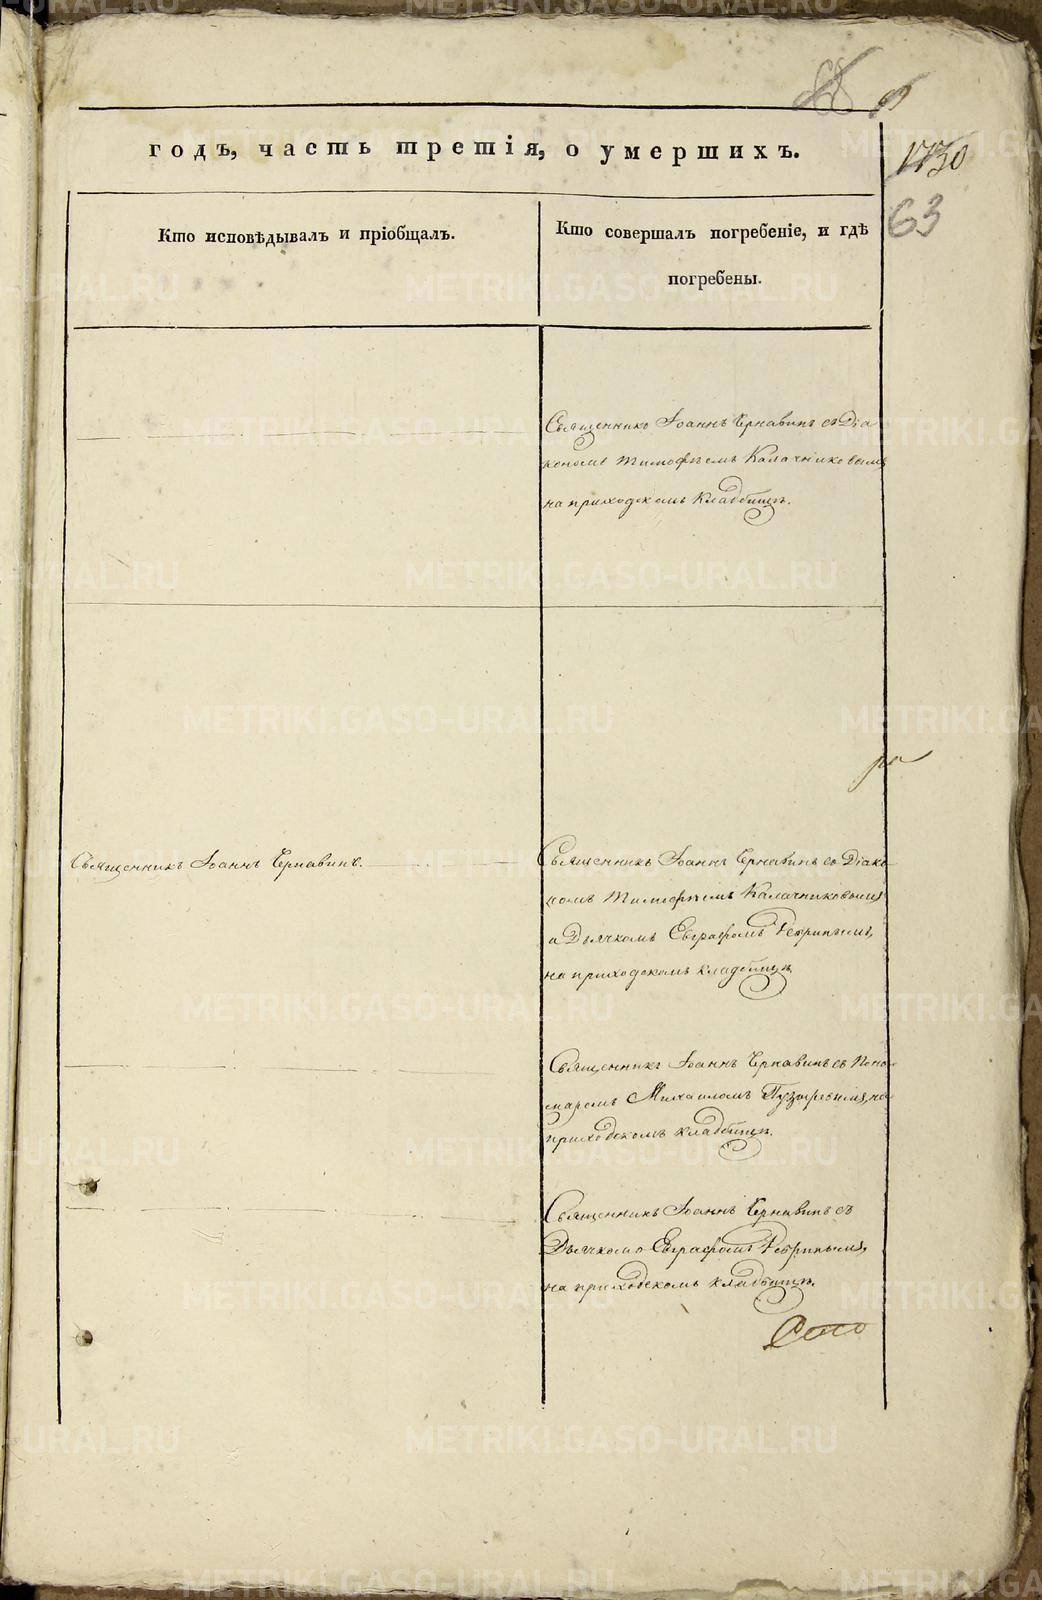 68
годъ, часть третія, о умершихъ.
63
Кто исповѣдывалъ и пріобщалъ.
Кто совершалъ погребеніе, и гдѣ
погребены.
Священникъ Іоаннъ Чернавинъ съ Діа
кономъ Тимофѣемъ Калачниковымъ
на приходскомъ кладбищѣ.
Священникъ Іоаннъ Чернавинъ.
Священникъ Іоаннъ Чернавинъ съ Діако
номъ Тимофѣемъ Калачниковымъ
и Дьячкомъ Евграфомъ
на приходскомъ кладбищѣ
Священникъ Іоаннъ Чернавинъ съ Поно
маремъ Михаиломъ на
приходскомъ кладбищѣ.
Священникъ Іоаннъ Чернавинъ съ
Дьячкомъ Евграфомъ
на приходскомъ кладбищѣ.
METRIKI.GASO-URAL.RU